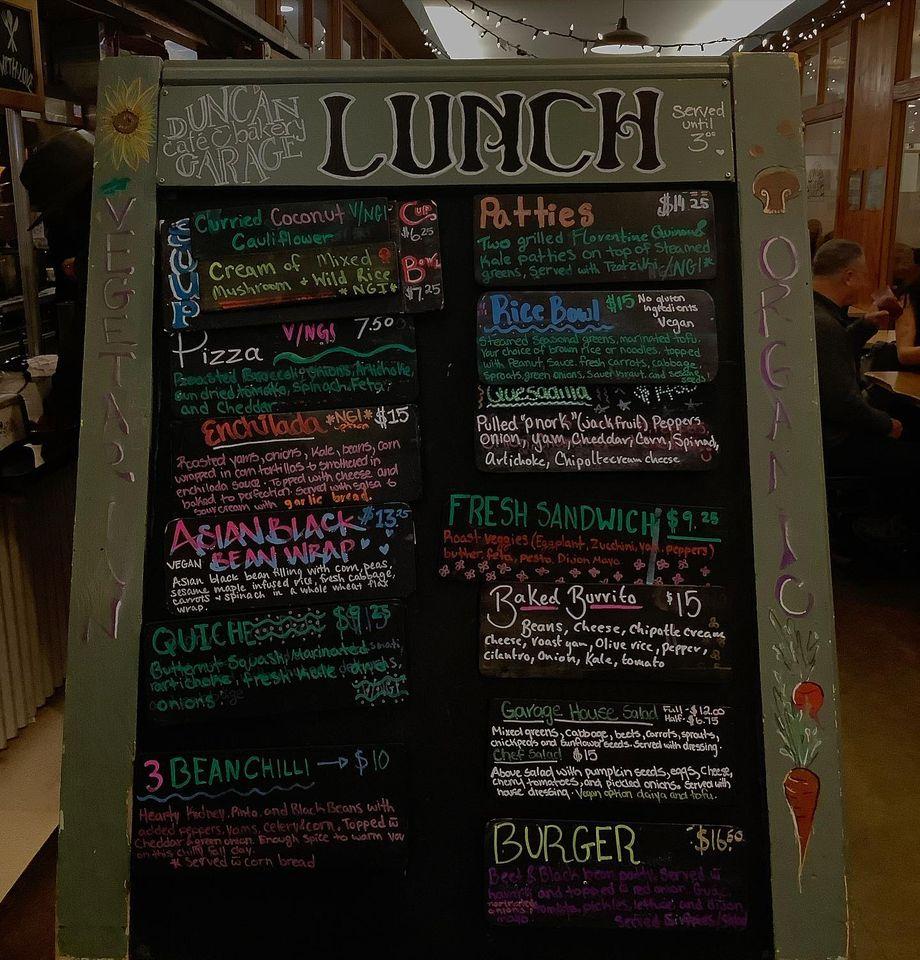 WITH LOVE
DUNCAN
Café & bakery
GARAGE
LUNCH
Served
until
3°°
VEGETARIAN
ORGANIC
SOUP
Curried Coconut V/NGI
Cauliflower
Cream of Mixed
Mushroom + Wild Rice
*NGI*
Cup
$6.25
Bowl
$7.25
Pizza V/NGI 7.50
Roasted Broccoli, Onions, Artichoke,
Sun dried tomato, Spinach, Feta,
and Cheddar
Enchilada *NGI* option $15
Roasted yams, onions, Kale, beans, corn
wrapped in corn tortillas & smothered in
enchilada sauce. Topped with cheese and
baked to perfection. Served with salsa &
sour cream with garlic bread.
ASIAN BLACK $13.25
VEGAN BEAN WRAP
Asian black bean filling with corn, peas,
sesame maple infused rice, fresh cabbage,
carrots + spinach in a whole wheat flax
wrap.
QUICHE $9.25
Butternut Squash, Marinated
artichoke, fresh
onions
V/NGI
3 BEAN CHILLI → $10
Hearty Kidney, Pinto, and Black Beans with
added peppers, yams, celery & corn. Topped w
Cheddar & green onion. Enough spice to warm you
on this chilly fall day.
* Served w corn bread
Patties $14.25
Two grilled Florentine Quinoa &
Kale patties on top of steamed
greens, Served with Tzatziki V/NGI*
Rice Bowl $15 No gluten
ingredients
Vegan
Steamed Seasonal greens, marinated tofu.
Your choice of brown rice or noodles, topped
with Peanut Sauce, fresh carrots, cabbage,
Sprouts, green onions, Sauerkraut, and sesame
seeds
Quesadilla
Pulled "pnork" (Jackfruit) Peppers
Onion, yam, Cheddar, Corn, Spinach,
Artichoke, Chipotle cream cheese
FRESH SANDWICH $9.25
Roast veggies (Eggplant, Zucchini, Yam, peppers)
butter, feta, Pesto, Dijon Mayo
Baked Burrito $15
Beans, Cheese, Chipotle cream
cheese, roast yam, Olive rice, pepper,
cilantro, Onion, Kale, tomato
Garage House Salad Full - $12.00
Half - $6.75
Mixed greens, cabbage, beets, carrots, sprouts,
chickpeas and Sunflower seeds. Served with dressing
Chef Salad $15
Above salad with pumpkin seeds, eggs, cheese,
cherry tomatoes, and pickled onions. Served with
house dressing. Vegan option daiya and tofu.
BURGER $16.50
Beet & Black bean patty. Served w
and topped w red onion, Guac,
tomato, pickles, lettuce and dijon
mayo.